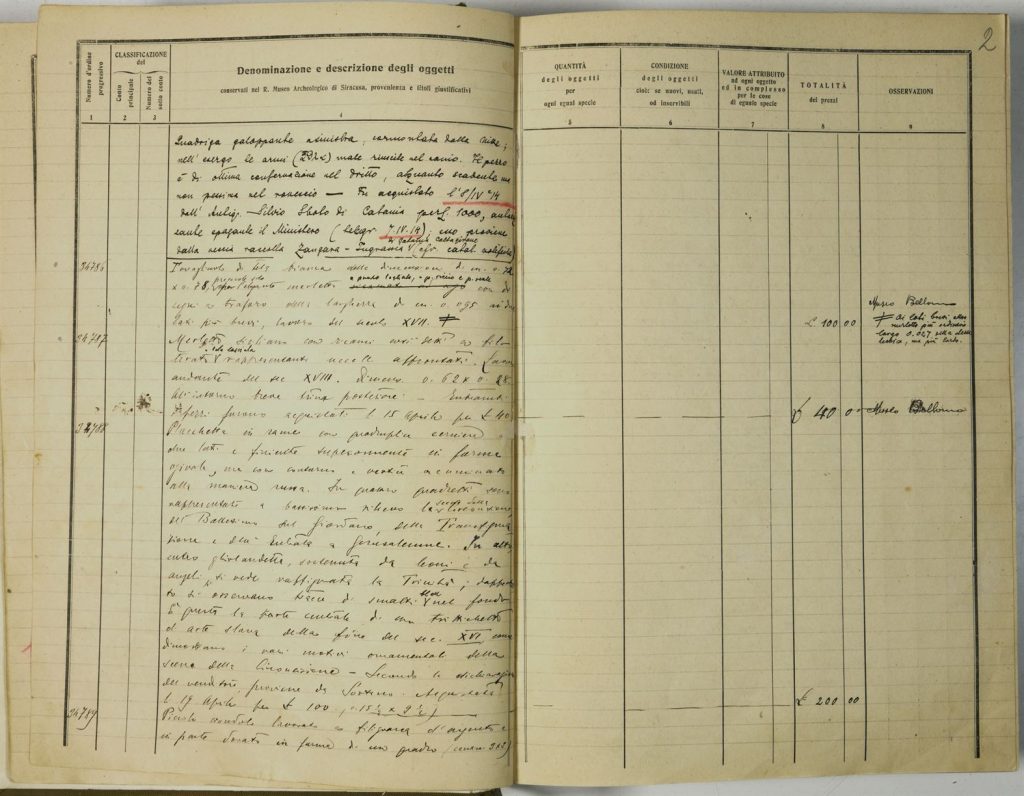 2
Numero d'ordine progressivo
CLASSIFICAZIONE del
Conto principale
Numero del sotto conto
Denominazione e descrizione degli oggetti
conservati nel R. Museo Archeologico di Siracusa, provenienza e titoli giustificativi
QUANTITÀ degli oggetti per ogni eguai specie
CONDIZIONE degli oggetti cioè: se nuovi, usati, od inservibili
VALORE ATTRIBUITO ad ogni oggetto ed in complesso per le cose di eguale specie
TOTALITÀ dei prezzi
OSSERVAZIONI
1 2 3 4 5 6 7 8 9
Quadriga galoppante a sinistra, sormontata dalla Nike;
nell'esergo le armi male riuscite nel conio. Il pezzo
è di ottima conservazione nel dritto, alquanto scadente ma
non pessima nel rovescio — Fu acquistato l'8/IV 14
dall'Antiq. Silvio Sboto di Catania per £. 1000,
il Ministero (telegr. 7.IV.14); esso proviene
dalla raccolta Zangara - Ingrassia
34786
di tela bianca delle dimensioni di m. 0.
x 0.78, merletti
a traforo della larghezza di m. 0.095 ai due
lati più brevi, lavoro del secolo XVII.
Museo Bellomo
£. 100 00
Ai lati brevi
merletto più
largo 0.027
34787
Merletto siciliano con ricami
rappresentante uccelli affrontati. Lavoro
andante del sec. XVIII. Dimens. 0.62 x 0.28
All'intorno breve trina posteriore - Entrambi
i pezzi furono acquistati il 15 Aprile per £ 40
£ 40 00
Museo Bellomo
34788
Placchetta in rame con quadruplice cerniera
due lati e finiente superiormente in forma
ogivale, ma con contorno e vertice acuminato
alla maniera russa. In quattro quadretti sono
rappresentate a bassissimo rilievo la scena della Circoncisione,
del Battesimo sul Giordano, della Transfigura
zione e dell'Entrata a Gerusalemme. In alto
entro ghirlandetta, sostenuta da leoni e da
angeli, si vede raffigurata la Trinità;
to si osservano tracce di smalti bleu nel fondo
È questa la parte centrale di un trittichetto
d'arte slava della fine del sec. XVI, come
dimostrano i vari motivi ornamentali della
scena della Circoncisione - Secondo la dichiarazione
del venditore, proviene da Sortino. Acquistata
il 17 Aprile per £ 100
£ 200 00
34789
Piccolo lavorato a filigrana d'argento e
in parte dorato in forma di un quadro